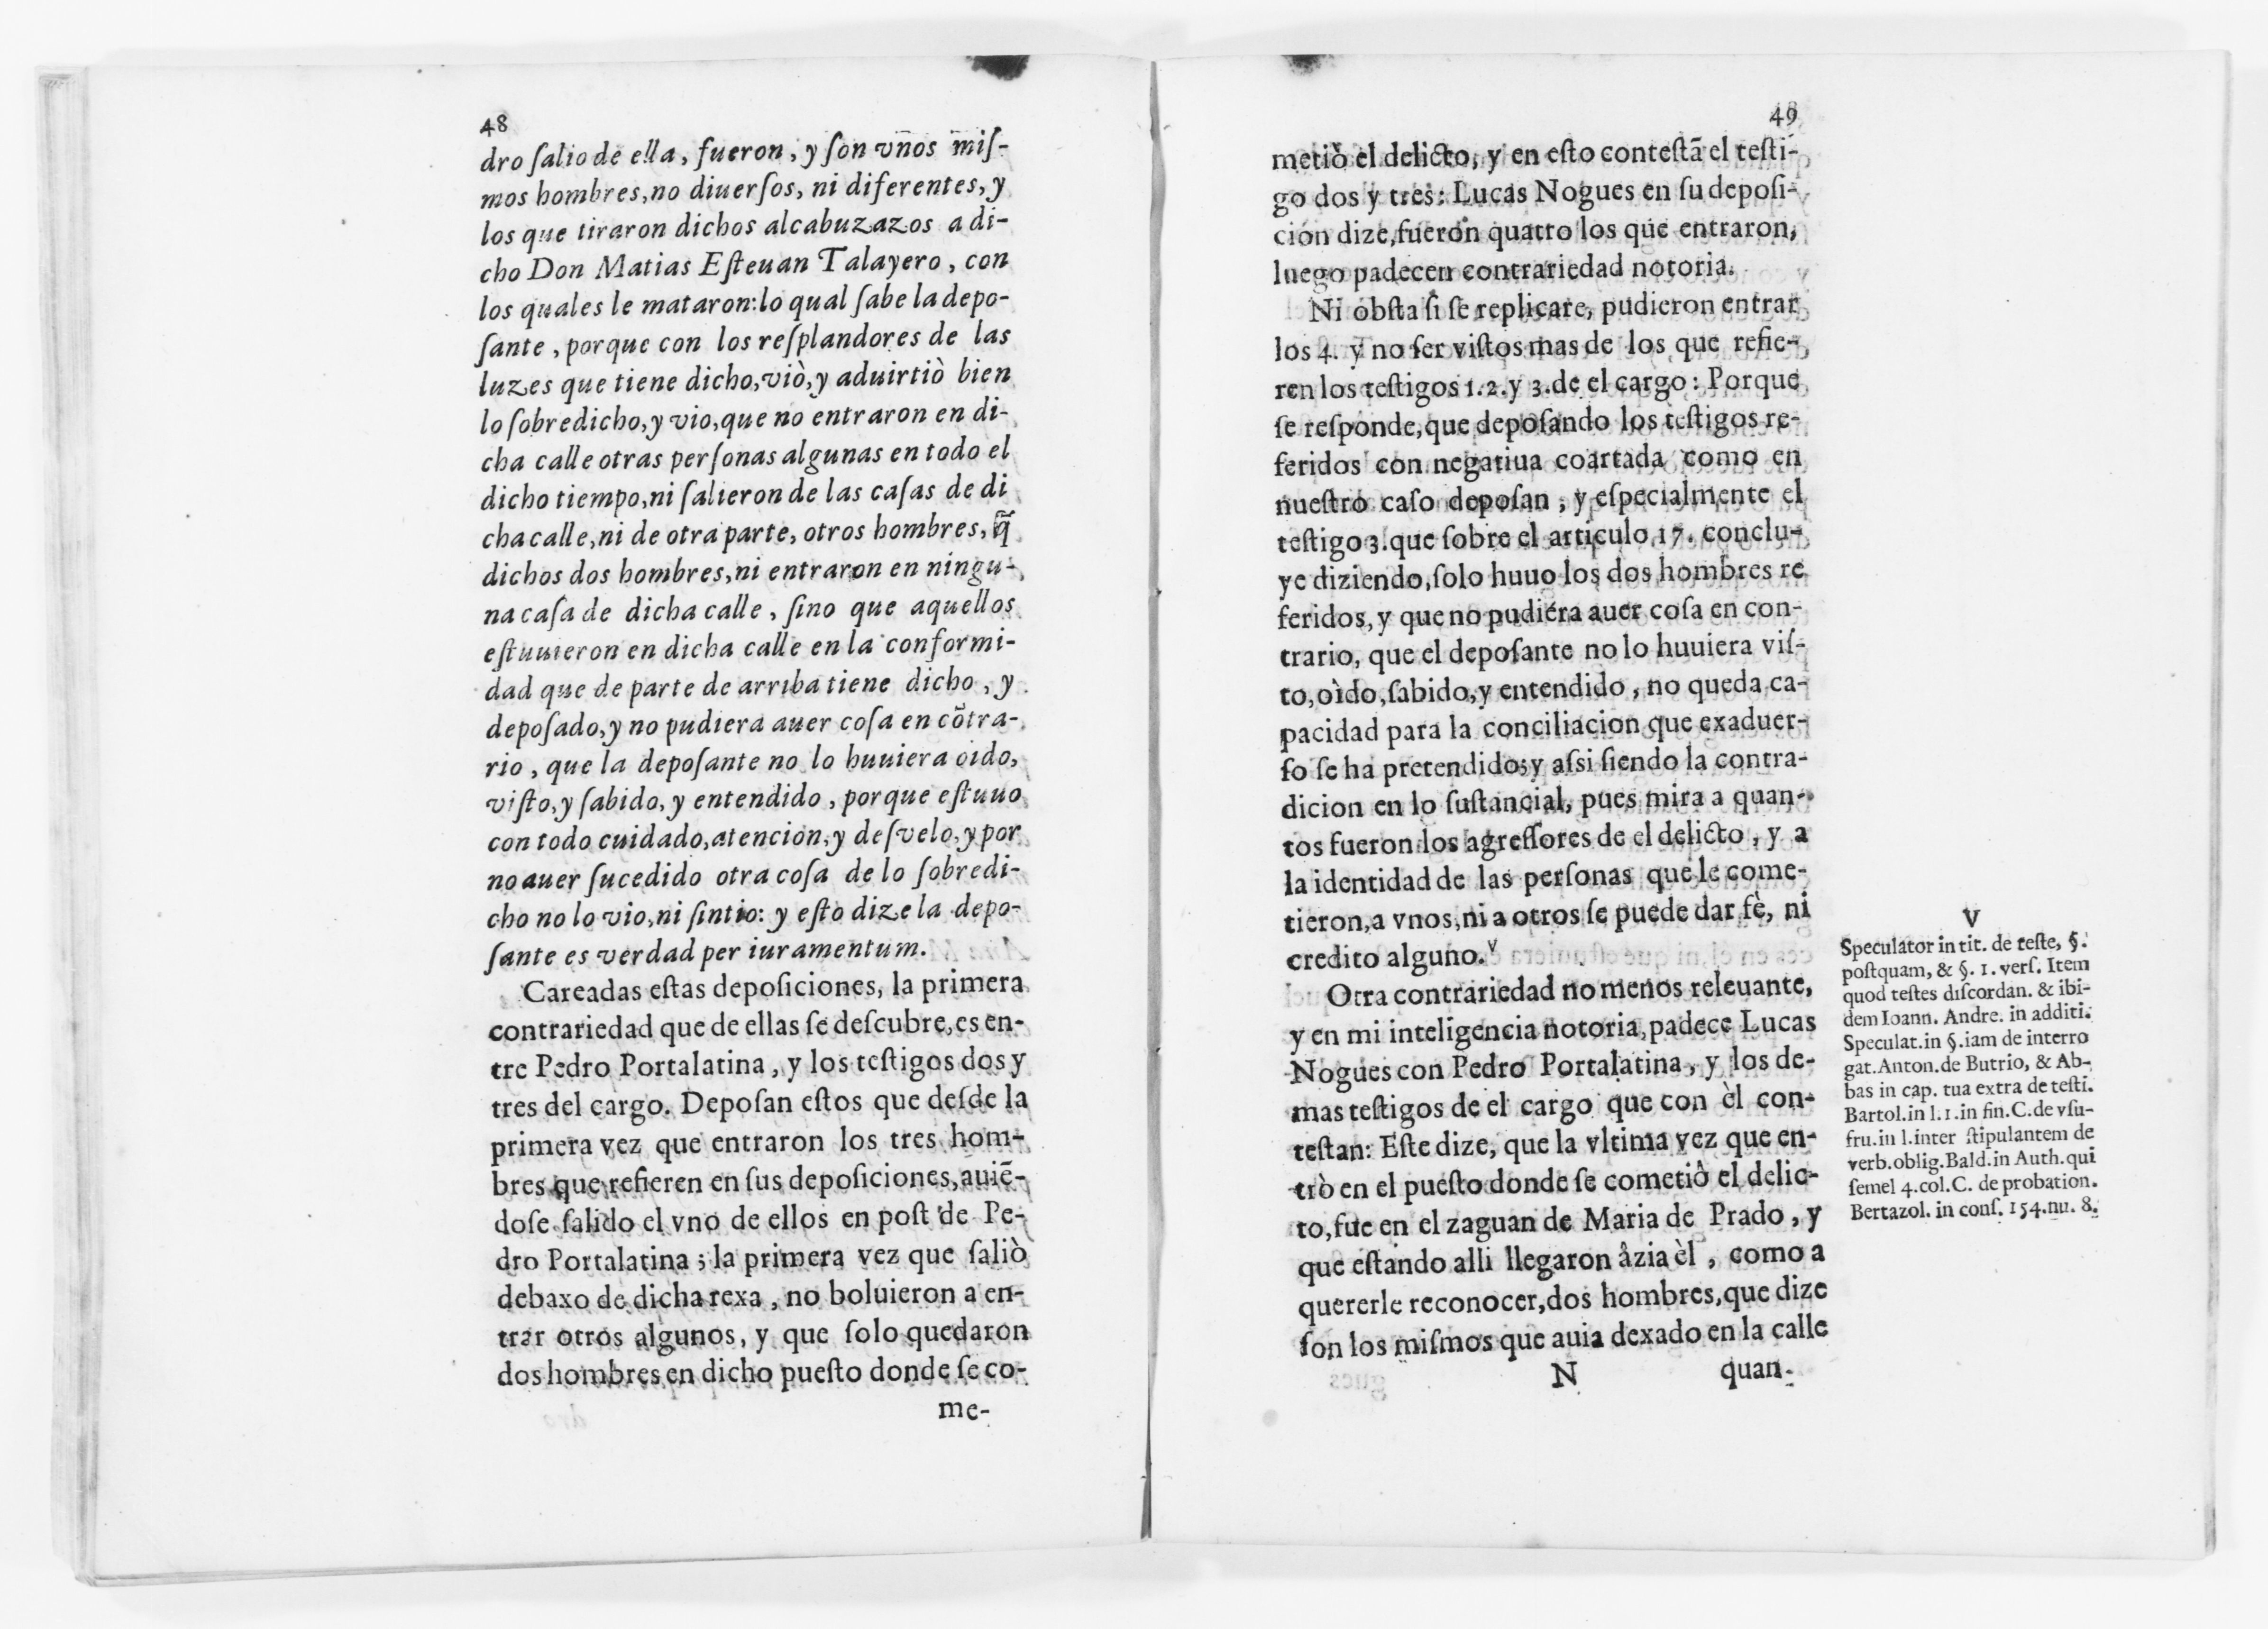 48
dro ſalio de ella, fueron, y ſon vnos miſ-
mos hombres, no diuerſos, ni diferentes, y
los que tiraron dichos alcabuzazos a di-
cho Don Matias Eſteuan Talayero, con
los quales le mataron: lo qual ſabe la depo-
ſante, porque con los reſplandores de las
luzes que tiene dicho, viò, y aduirtiò bien
lo ſobredicho, y vio, que no entraron en di-
cha calle otras perſonas algunas en todo el
dicho tiempo, ni ſalieron de las caſas de di
cha calle, ni de otra parte, otros hombres, q̃
dichos dos hombres, ni entraron en ningu-
na caſa de dicha calle, ſino que aquellos
eſtuuieron en dicha calle en la conformi-
dad que de parte de arriba tiene dicho, y
depoſado, y no pudiera auer coſa en cõtra-
rio, que la depoſante no lo huuiera oido,
viſto, y ſabido, y entendido, porque eſtuuo
con todo cuidado, atencion, y deſvelo, y por
no auer ſucedido otra coſa de lo ſobredi-
cho no lo vio, ni ſintio: y eſto dize la depo-
ſante es verdad per iuramentum.
Careadas eſtas depoſiciones, la primera
contrariedad que de ellas ſe deſcubre, es en-
tre Pedro Portalatina, y los teſtigos dos y
tres del cargo. Depoſan eſtos que deſde la
primera vez que entraron los tres hom-
bres que refieren en ſus depoſiciones, auiẽ-
doſe ſalido el vno de ellos en poſt de Pe-
dro Portalatina; la primera vez que ſaliò
debaxo de dicha rexa, no boluieron a en-
trar otros algunos, y que ſolo quedaron
dos hombres en dicho pueſto donde ſe co-
me-
49
metiò el delicto, y en eſto conteſtã el teſti-
go dos y tres: Lucas Nogues en ſu depoſi-
ción dize, fueron quatro los que entraron,
luego padecen contrariedad notoria.
Ni obſta ſi ſe replicare, pudieron entrar
los 4. y no ſer viſtos mas de los que refie-
ren los teſtigos 1. 2. y 3. de el cargo: Porque
ſe reſponde, que depoſando los teſtigos re-
feridos con negatiua coartada como en
nueſtro caſo depoſan, y eſpecialmente el
teſtigo 3. que ſobre el articulo 17. conclu-
ye diziendo, ſolo huuo los dos hombres re
feridos, y que no pudiera auer coſa en con-
trario, que el depoſante no lo huuiera viſ-
to, oìdo, ſabido, y entendido, no queda ca-
pacidad para la conciliacion que exaduer-
ſo ſe ha pretendido; y aſsi ſiendo la contra-
dicion en lo ſuſtancial, pues mira a quan-
tos fueron los agreſſores de el delicto, y a
la identidad de las perſonas que le come-
tieron, a vnos, ni a otros ſe puede dar fè, ni
credito alguno. V
Otra contrariedad no menos releuante,
y en mi inteligencia notoria, padece Lucas
Nogues con Pedro Portalatina, y los de-
mas teſtigos de el cargo que con èl con-
teſtan: Eſte dize, que la vltima vez que en-
trò en el pueſto donde ſe cometiò el delic-
to, fue en el zaguan de Maria de Prado, y
que eſtando alli llegaron âzia èl, como a
quererle reconocer, dos hombres, que dize
ſon los miſmos que auia dexado en la calle
N quan-
V
Speculator in tit. de teſte, §.
poſtquam, & §. 1. verſ. Item
quod teſtes diſcordan. & ibi-
dem Ioann. Andre. in additi.
Speculat. in §. iam de interro
gat. Anton. de Butrio, & Ab-
bas in cap. tua extra de teſti.
Bartol. in l. 1. in fin. C. de vſu-
fru. in l. inter ſtipulantem de
verb. oblig. Bald. in Auth. qui
ſemel 4. col. C. de probation.
Bertazol. in conſ. 154. nu. 8.